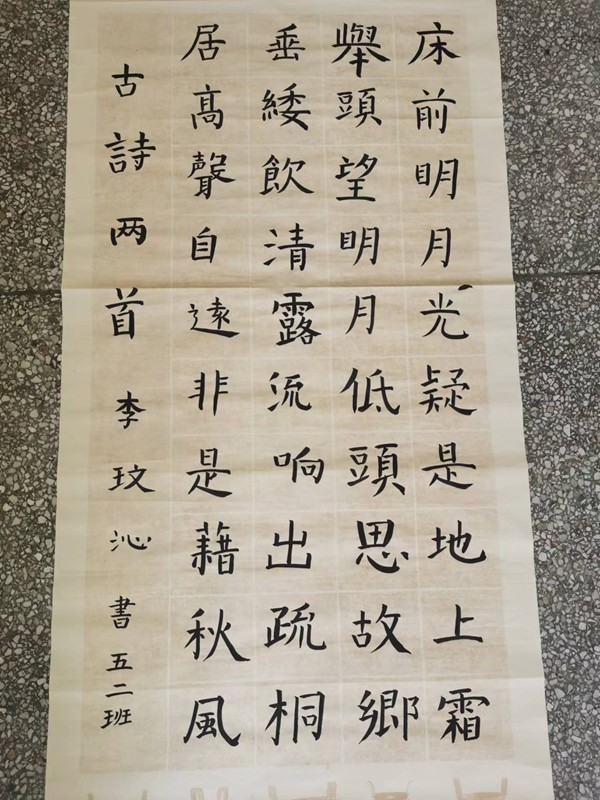 床前明月光疑是地上霜
舉頭望明月低頭思故鄉
垂緌飲清露流响出疏桐
居高聲自遠非是藉秋風
古詩两首李玟沁書五二班